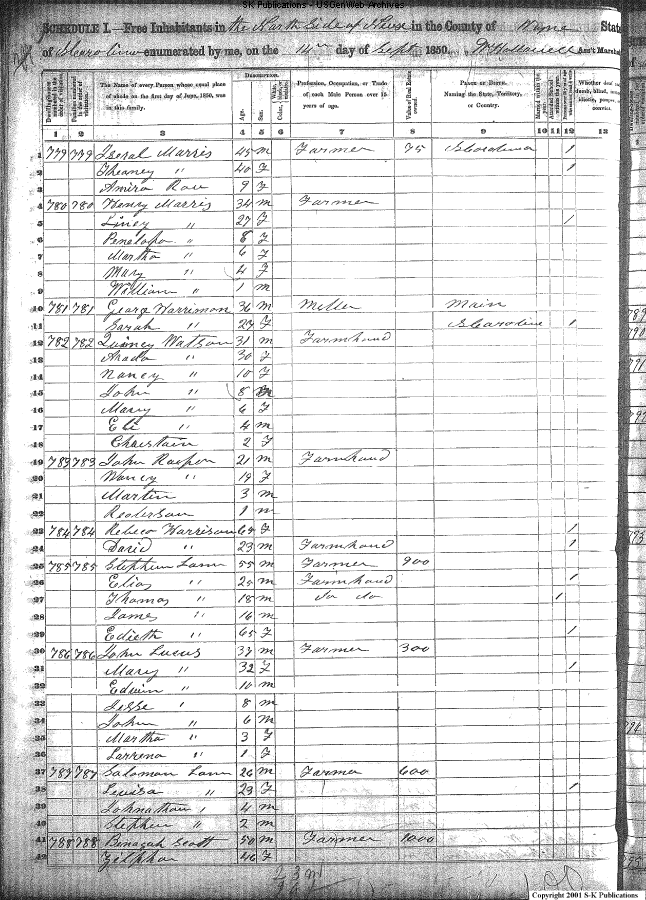 SK Publications - USGenWeb Archives
SCHEDULE I.—Free Inhabitants in the North Side of Neuse in the County of Wayne State
of N Carolina enumerated by me, on the 14th day of Sept 1850. Ass't Marshal
Dwelling-houses numbered in the order of visitation. Families numbered in the order of visitation. The Name of every Person whose usual place of abode on the first day of June, 1850, was in this family. DESCRIPTION. Age. Sex. Color, White, black, or mulatto. Profession, Occupation, or Trade of each Male Person over 15 years of age. Value of Real Estate owned. PLACE OF BIRTH. Naming the State, Territory, or Country. Married within the year. Whether deaf and dumb, blind, insane, idiotic, pauper, or convict.
1 2 3 4 5 6 7 8 9 10 11 12 13
1 779 779 Iseral Marris 45 m Farmer 75 N Carolina 1
2 " 40 F 1
3 9 F
4 780 780 Henry Marris 34 m Farmer
5 Liney " 27 F 1
6 Penelopa " 8 F
7 Martha " 6 F
8 Mary " 4 F
9 William " 1 m
10 781 781 George Harrimon 36 m Miller Main
11 Sarah " 23 F N Caroline 1
12 782 782 Quinney Watson 31 m Farmhand
13 " 30 F
14 Nancy " 10 F
15 John " 8 m
16 Mary " 6 F
17 Eli " 4 m
18 Christain 2 F
19 783 783 John Rasper 21 m Farmhand
20 Nancy " 19 F
21 Martin 3 m
22 1 m
23 784 784 Rebeco Harrison 65 F 1
24 David " 23 m Farmhand 1
25 785 785 Stephen Lann 55 m Farmer 900
26 Elias " 25 m Farmhand 1
27 Thomas " 18 m do do 1
28 James " 16 m
29 Edieth " 65 F 1
30 786 786 John Lucus 37 m Farmer 300
31 Mary " 32 F 1
32 Edwin " 10 m
33 Jesse " 8 m
34 John " 6 m
35 Martha " 3 F
36 Larrena " 1 F
37 787 787 Salomon Lann 26 m Farmer 600
38 Levisa " 23 F 1
39 Johnathan " 4 m
40 Stephen " 2 m
41 788 788 Scott 50 m Farmer 1000
42 Zilphar 46 F
Copyright 2001 S-K Publications